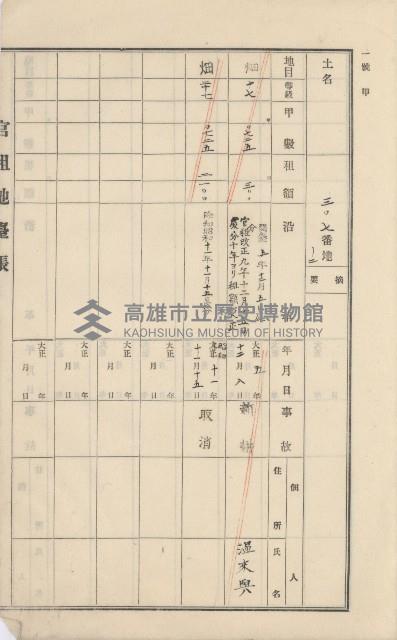 一號 甲
土名
三〇七番地
ノ二
摘要
地目 等級 甲數 租額 沿 革
畑 十七 〇七二五 三〇〇
五年十二月五日
官租改正九年十二月十五日
處分十年ヨリ租額改正
畑 十七 〇七二五 二一〇〇
昭和十一年十一月十五日
年月日 事故 住所 氏名
個人
大正五年
十二月 日
新
温來興
大正 昭和 十一年
十一月十五日
取消
大正 年
月 日
大正 年
月 日
大正 年
月 日
大正 年
月 日
官租地臺帳
高雄市立歷史博物館
KAOHSIUNG MUSEUM OF HISTORY